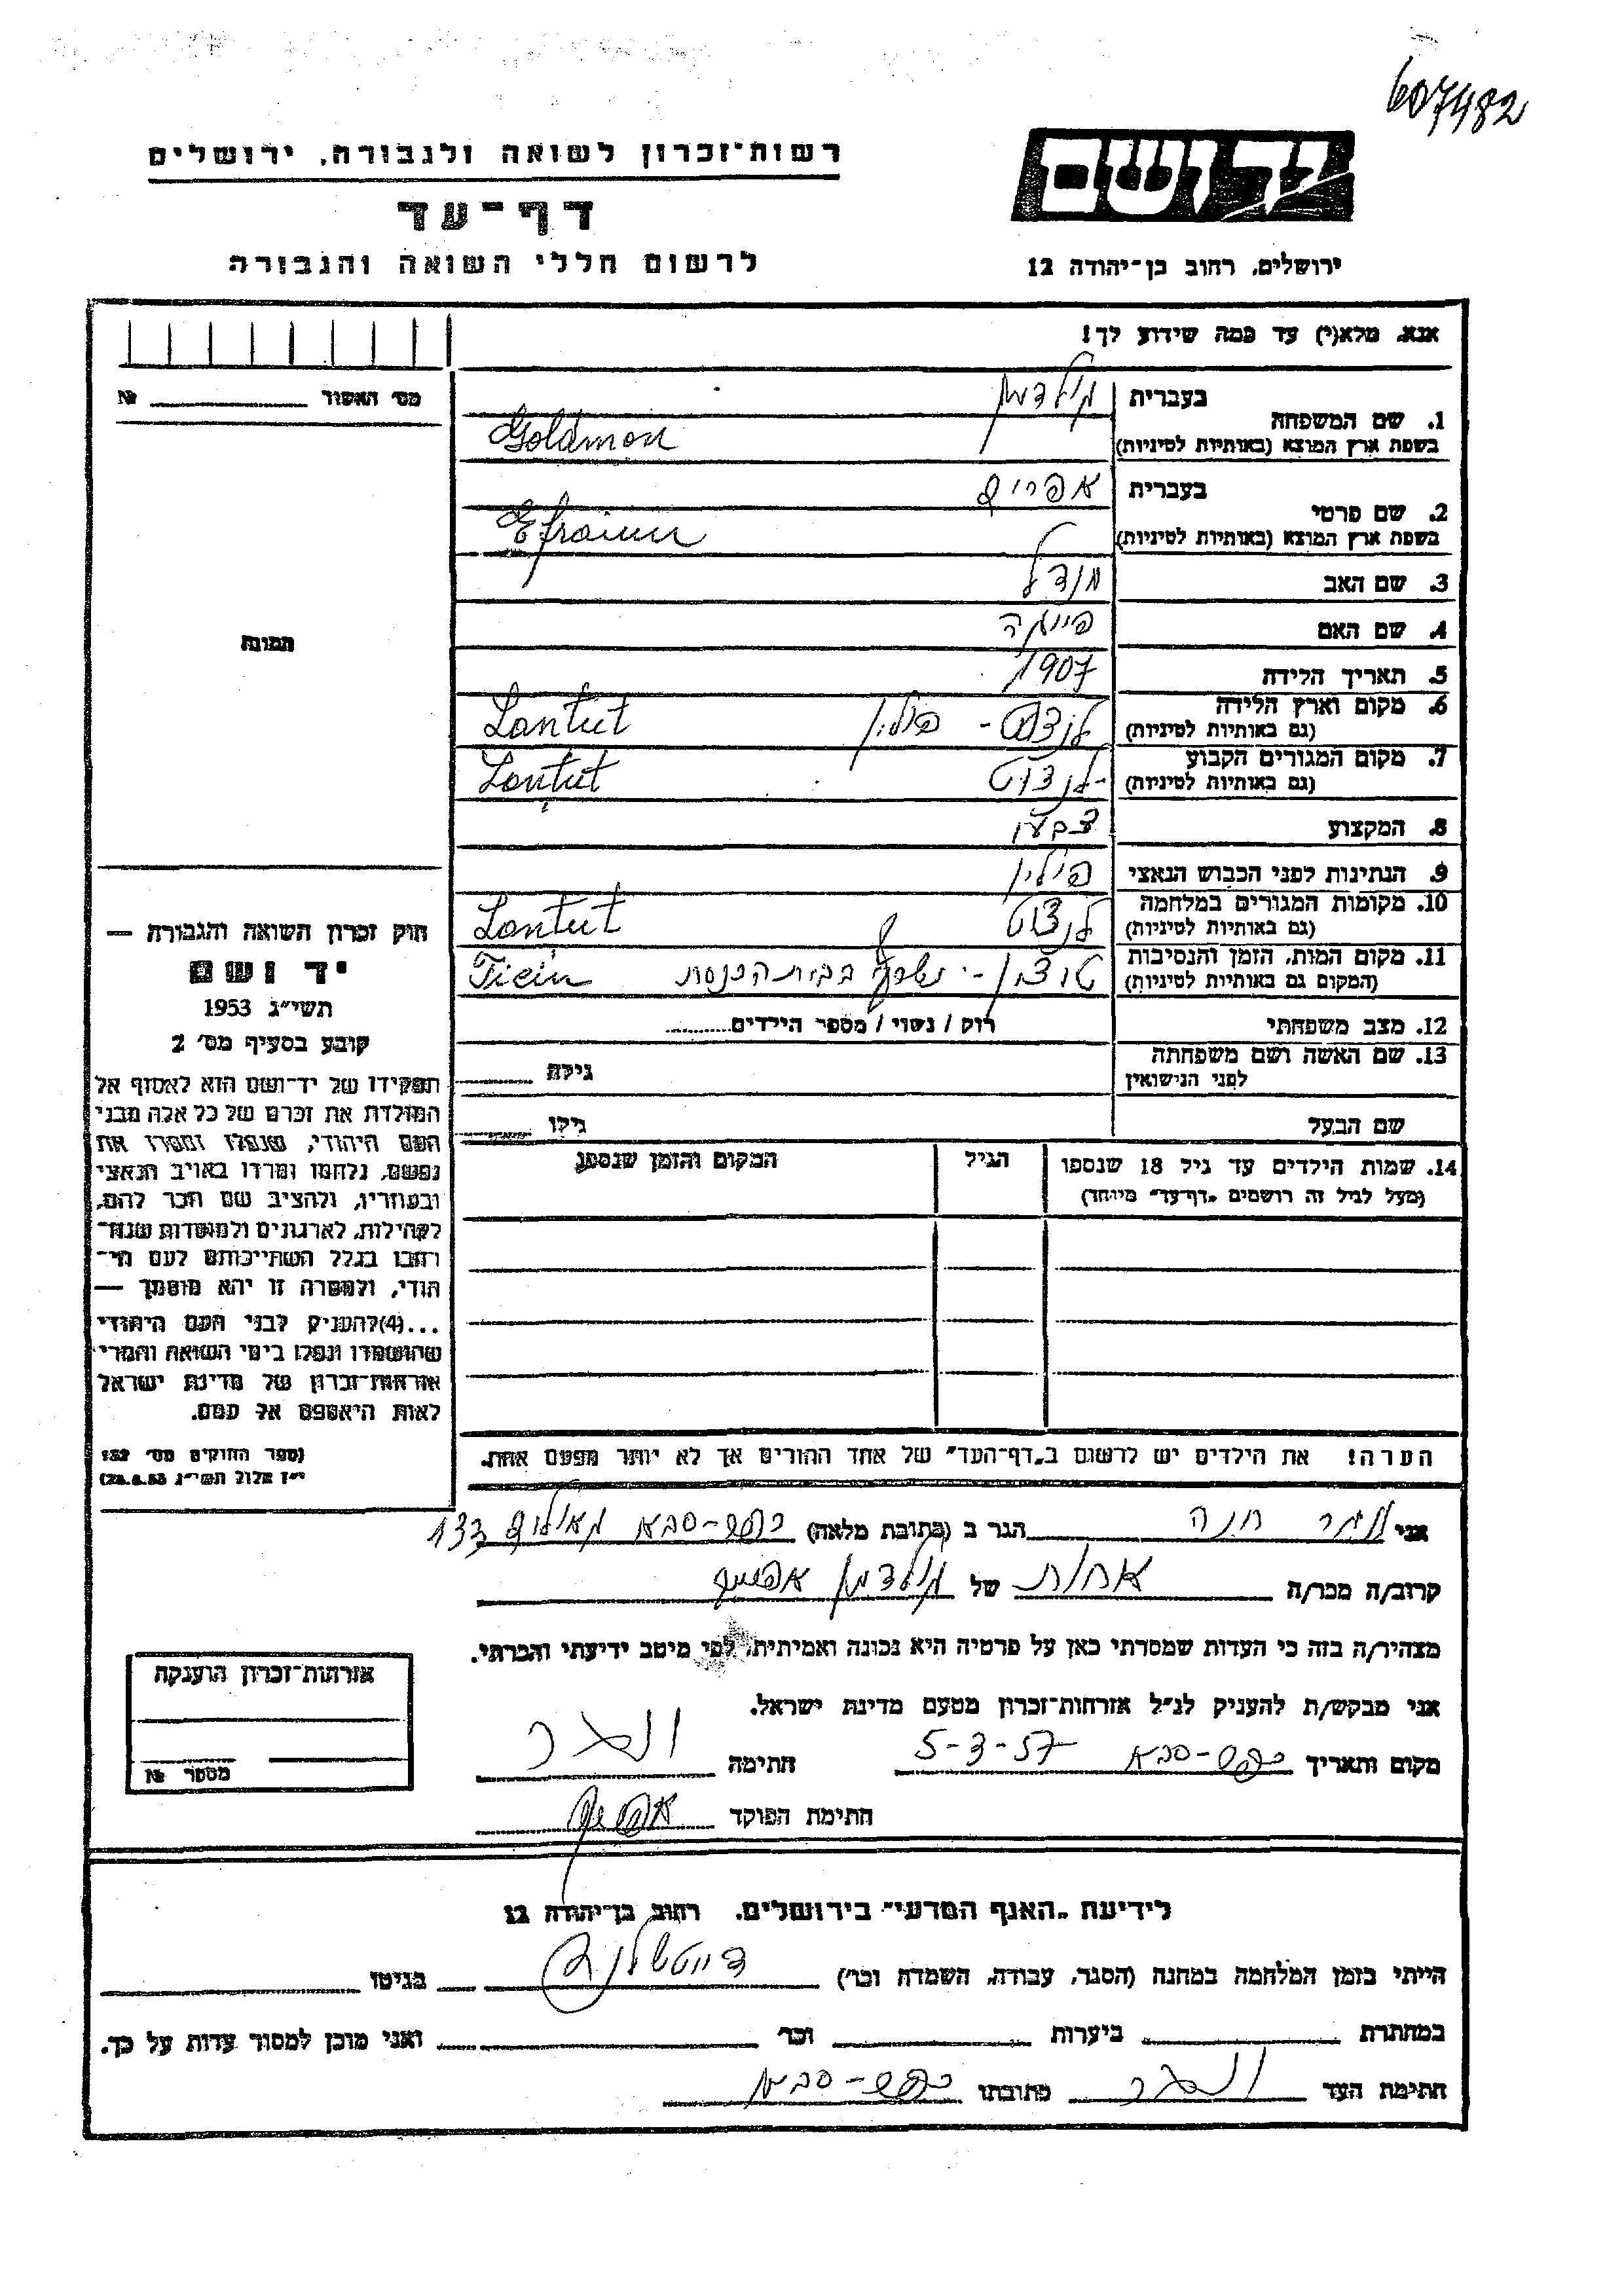 607482
יד ושם
רשות־זכרון לשואה ולגבורה, ירושלים
דף־עד
לרשום חללי השואה והגבורה
ירושלים, רחוב בן־יהודה 12
אנא, מלא(י) עד כמה שידוע לך!
מס׳ האשור № 
1. שם המשפחה בעברית גולדמן
בשפת ארץ המוצא (באותיות לטיניות) Goldman
2. שם פרטי בעברית אפרים
בשפת ארץ המוצא (באותיות לטיניות) Efraim
3. שם האב מנדל
4. שם האם
5. תאריך הלידה 1907
6. מקום וארץ הלידה (גם באותיות לטיניות) לנצוט - פולין Lantut
7. מקום המגורים הקבוע (גם באותיות לטיניות) לנצוט Lantut
8. המקצוע צבעי
9. הנתינות לפני הכבוש הנאצי פולין
10. מקומות המגורים במלחמה (גם באותיות לטיניות) לנצוט Lantut
11. מקום המות, הזמן והנסיבות (המקום גם באותיות לטיניות) נשרף בבית הכנסת Ticin
12. מצב משפחתי רווק / נשוי / מספר הילדים
13. שם האשה ושם משפחתה לפני הנישואין גילה
שם הבעל גילו
14. שמות הילדים עד גיל 18 שנספו (מעל לגיל זה רושמים „דף־עד״ מיוחד) הגיל המקום והזמן שנספו
הערה! את הילדים יש לרשום ב„דף־העד״ של אחד ההורים אך לא יותר מפעם אחת.
תמונה
חוק זכרון השואה והגבורה —
יד ושם
תשי״ג 1953
קובע בסעיף מס׳ 2
תפקידו של יד־ושם הוא לאסוף אל
המולדת את זכרם של כל אלה מבני
העם היהודי, שנפלו ומסרו את
נפשם, נלחמו ומרדו באויב הנאצי
ובעוזריו, ולהציב שם וזכר להם,
לקהילות, לארגונים ולמוסדות שנח־
רבו בגלל השתייכותם לעם הי־
הודי, ולמטרה זו יהא מוסמך —
...(4)להעניק לבני העם היהודי
שהושמדו ונפלו בימי השואה והמרי
אזרחות־זכרון של מדינת ישראל
לאות היאספם אל עמם.
(ספר החוקים מס׳ 132
י״ז אלול תשי״ג 28.8.53)
אני חנה הגר ב (כתובת מלאה) כפר-סבא 133
קרוב/ה מכר/ה אחות של גולדמן אפרים
מצהיר/ה בזה כי העדות שמסרתי כאן על פרטיה היא נכונה ואמיתית, לפי מיטב ידיעתי והכרתי.
אני מבקש/ת להעניק לנ״ל אזרחות־זכרון מטעם מדינת ישראל.
מקום ותאריך כפר-סבא 5-3-57 חתימה
חתימת הפוקד
אזרחות־זכרון הוענקה
מספר №
לידיעת „האגף המדעי״ בירושלים, רחוב בן־יהודה 12
הייתי בזמן המלחמה במחנה (הסגר, עבודה, השמדה וכו׳) דויטשלנד בגיטו
במחתרת ביערות וכו׳ ואני מוכן למסור עדות על כך.
חתימת העד כתובתו כפר-סבא